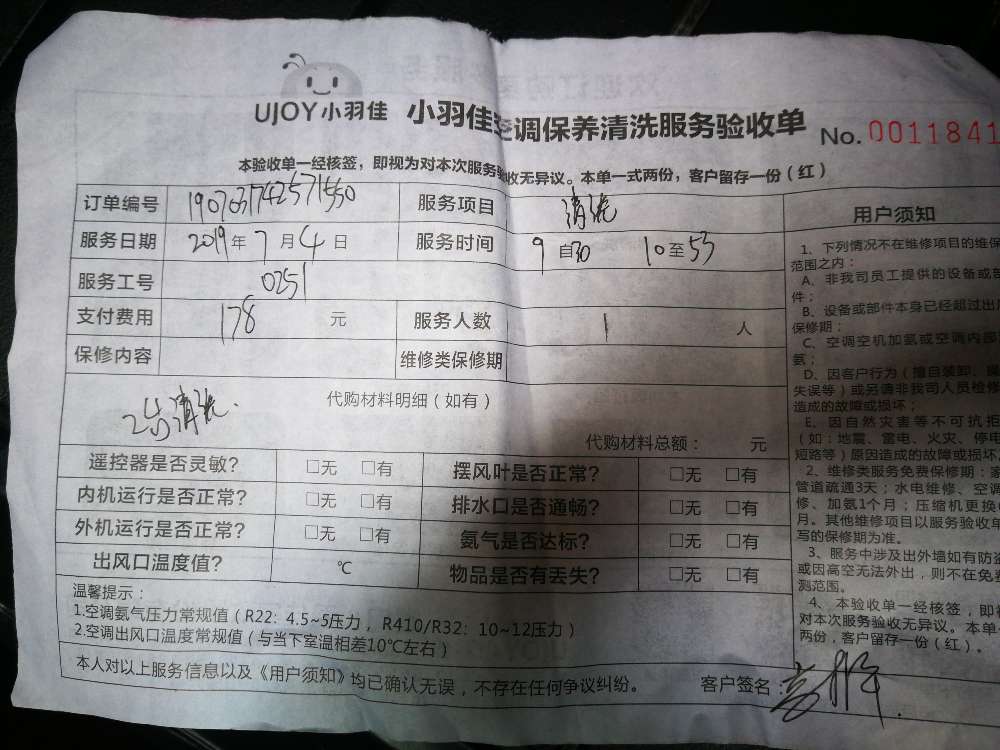 UJOY小羽佳 小羽佳空调保养清洗服务验收单 No. 0011841
本验收单一经核签，即视为对本次服务验收无异议。本单一式两份，客户留存一份（红）
订单编号 服务项目 清洗
服务日期 2019年7月4日 服务时间 9自30 10至53
服务工号 0251
支付费用 178 元 服务人数 1 人
保修内容 维修类保修期
2台清洗. 代购材料明细（如有）
代购材料总额： 元
遥控器是否灵敏？ □无 □有 摆风叶是否正常？ □无 □有
内机运行是否正常？ □无 □有 排水口是否通畅？ □无 □有
外机运行是否正常？ □无 □有 氨气是否达标？ □无 □有
出风口温度值？ ℃ 物品是否有丢失？ □无 □有
温馨提示：
1.空调氨气压力常规值（R22：4.5~5压力，R410/R32：10~12压力）
2.空调出风口温度常规值（与当下室温相差10℃左右）
本人对以上服务信息以及《用户须知》均已确认无误，不存在任何争议纠纷。 客户签名：
用户须知
1、下列情况不在维修项目的维保
范围之内：
A、非我司员工提供的设备或部
件；
B、设备或部件本身已经超过出
保修期；
C、空调空机加氨或空调内部
氨；
D、因客户行为（擅自装卸、
失误等）或另请非我司人员检修
造成的故障或损坏；
E、因自然灾害等不可抗拒
（如:地震、雷电、火灾、停电
短路等）原因造成的故障或损坏
2、维修类服务免费保修期：
管道疏通3天；水电维修、空调
修、加氨1个月；压缩机更换
月。其他维修项目以服务验收单
写的保修期为准。
3、服务中涉及出外墙如有防盗
或因高空无法外出，则不在免费
测范围。
4、本验收单一经核签，即
对本次服务验收无异议。本单
两份，客户留存一份（红）。